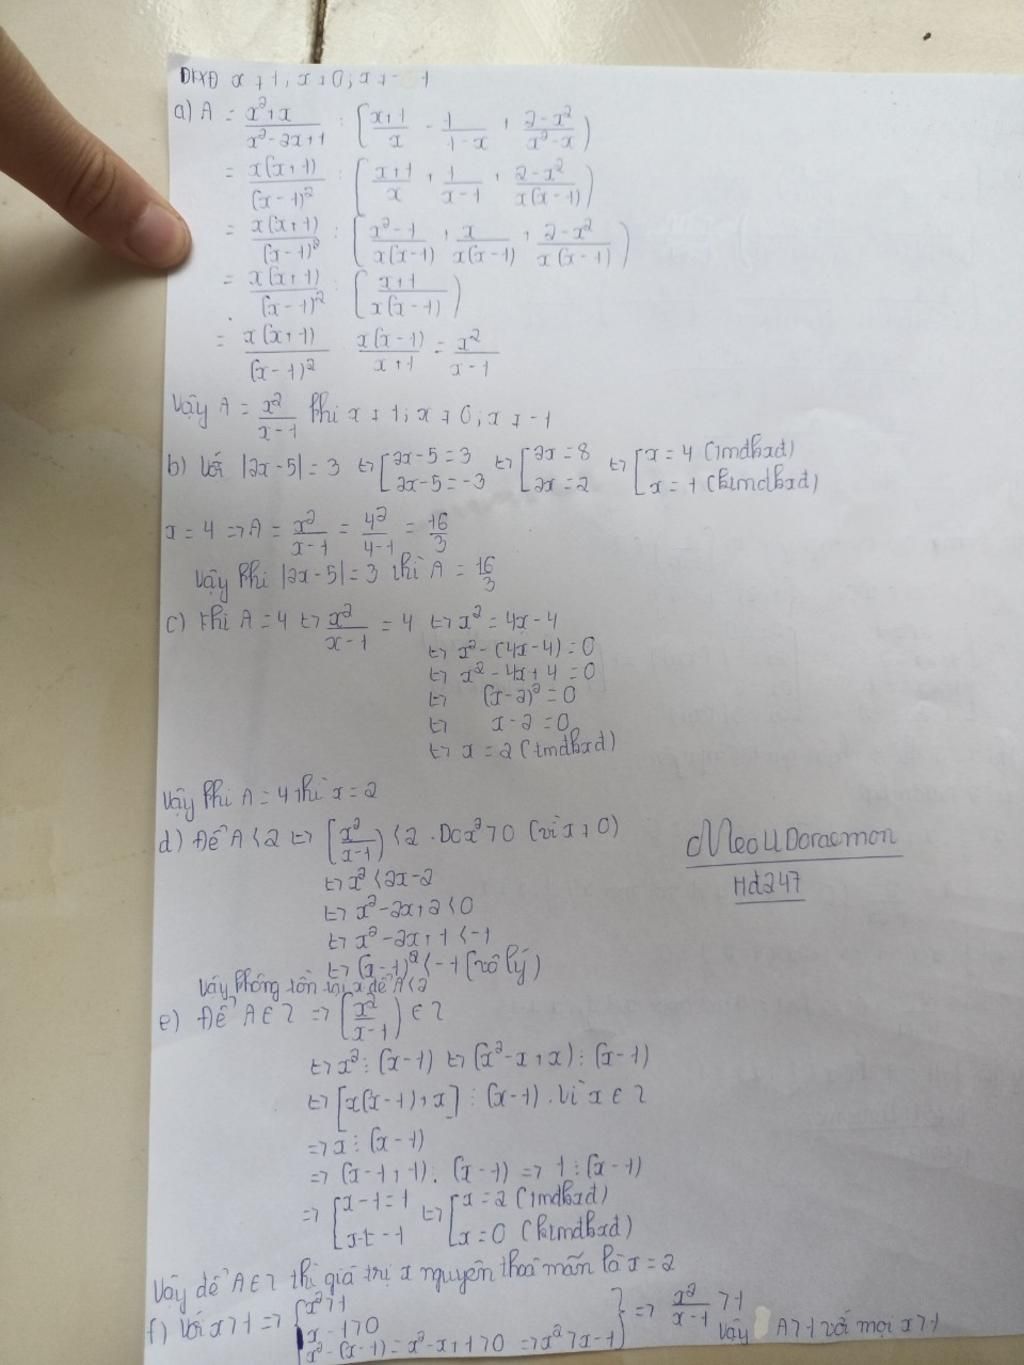 ĐKXĐ x ≠ 1; x ≠ 0; x ≠ -1
a) A = \frac{x²+x}{x²-2x+1} : (\frac{x+1}{x} - \frac{1}{1-x} + \frac{2-x²}{x²-x})
= \frac{x(x+1)}{(x-1)²} : (\frac{x+1}{x} + \frac{1}{x-1} + \frac{2-x²}{x(x-1)})
= \frac{x(x+1)}{(x-1)²} : (\frac{x²-1}{x(x-1)} + \frac{x}{x(x-1)} + \frac{2-x²}{x(x-1)})
= \frac{x(x+1)}{(x-1)²} : (\frac{x+1}{x(x-1)})
= \frac{x(x+1)}{(x-1)²} \frac{x(x-1)}{x+1} = \frac{x²}{x-1}
Vậy A = \frac{x²}{x-1} khi x ≠ 1; x ≠ 0; x ≠ -1
b) Với |2x-5| = 3 ⇔ [2x-5=3 ⇔ [2x=8 ⇔ [x=4 (tmđkxđ)
2x-5=-3 2x=2 x=1 (ktmđkxđ)
x = 4 => A = \frac{x²}{x-1} = \frac{4²}{4-1} = \frac{16}{3}
Vậy khi |2x-5| = 3 thì A = \frac{16}{3}
c) Khi A = 4 ⇔ \frac{x²}{x-1} = 4 ⇔ x² = 4x-4
⇔ x² - (4x-4) = 0
⇔ x² - 4x + 4 = 0
⇔ (x-2)² = 0
⇔ x-2 = 0
⇔ x = 2 (tmđkxđ)
Vậy khi A = 4 thì x = 2
d) Để A < 2 ⇔ (\frac{x²}{x-1}) < 2. Do x² > 0 (vì x ≠ 0)
⇔ x² < 2x-2
⇔ x² - 2x + 2 < 0
⇔ x² - 2x + 1 < -1
⇔ (x-1)² < -1 (vô lý)
Vậy không tồn tại x để A < 2
MeoUDoraemon
Hd247
e) Để A ∈ Z => (\frac{x²}{x-1}) ∈ Z
⇔ x² ⋮ (x-1) ⇔ (x²-x+x) ⋮ (x-1)
⇔ [x(x-1)+x] ⋮ (x-1). Vì x ∈ Z
=> x ⋮ (x-1)
=> (x-1+1) ⋮ (x-1) => 1 ⋮ (x-1)
=> [x-1=1 ⇔ [x=2 (tmđkxđ)
x-1=-1 x=0 (ktmđkxđ)
Vậy để A ∈ Z thì giá trị x nguyên thoả mãn là x = 2
f) Với x > 1 => {x² > 1
x - 1 > 0
x² - (x-1) = x² - x + 1 > 0 => x² > x-1} => \frac{x²}{x-1} > 1
Vậy A > 1 với mọi x > 1